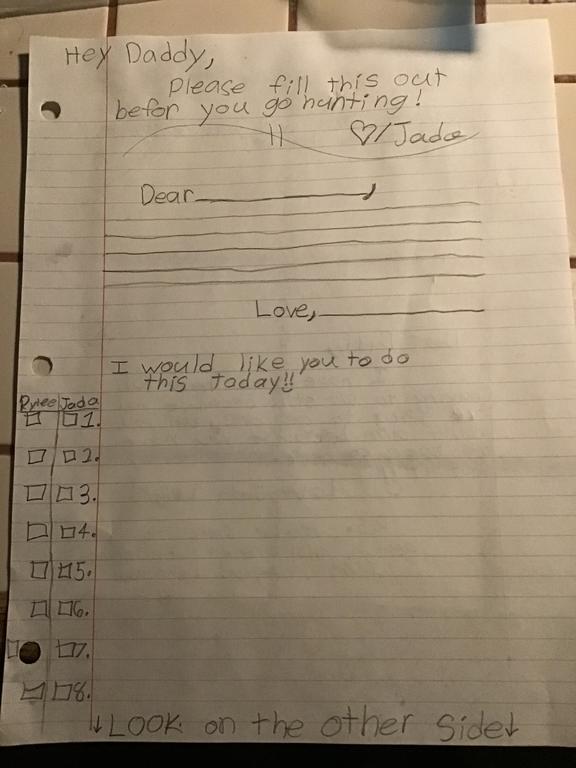 Hey Daddy,
Please fill this out
befor you go hunting!
♡/Jada
Dear
Love,
I would like you to do
this today!!
Rylee Jada
1.
2.
3.
4.
5.
6.
7.
8.
↓LOOK on the other side↓